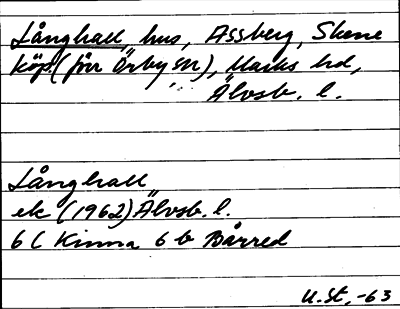 Långhall, hus, Assberg, Skene
köp. (förr Örby sn), Marks hd,
Älvsb. l.
Långhall
ek (1962) Älvsb. l.
6 C Kinna 6 b Bårred
U.St, -63